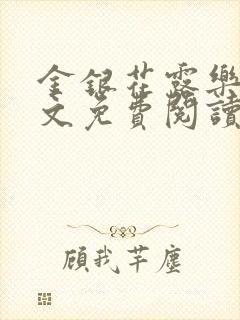 金銀花露樂
文免費閱讀
顧我芊塵